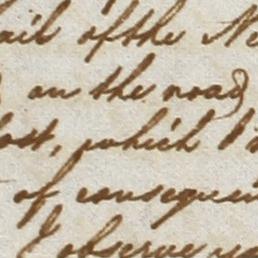 of the
on the road
lost, which I
of consequen
I observe